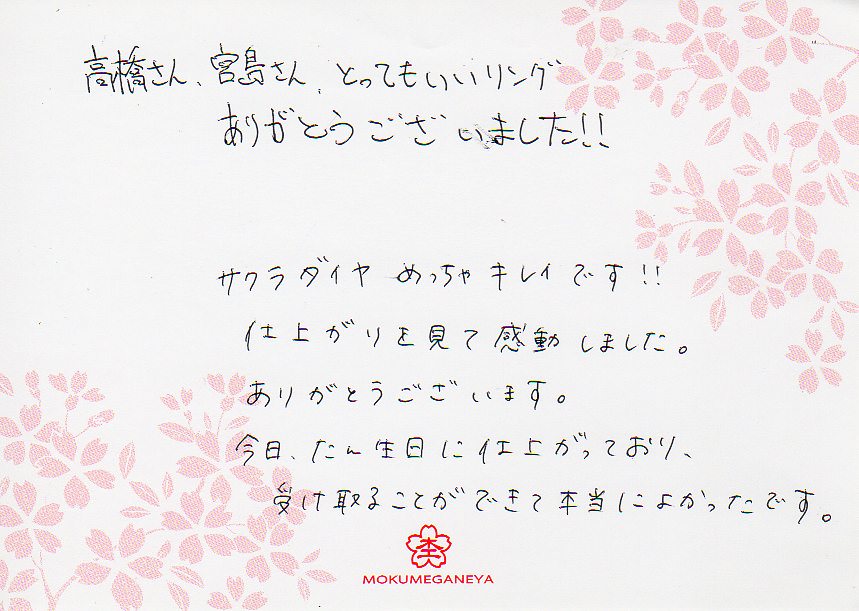 高橋さん、宮島さん、とってもいいリング
ありがとうございました!!
サクラダイヤ めっちゃキレイです!!
仕上がりを見て感動しました。
ありがとうございます。
今日、たん生日に仕上がっており、
受け取ることができて本当によかったです。
MOKUMEGANEYA